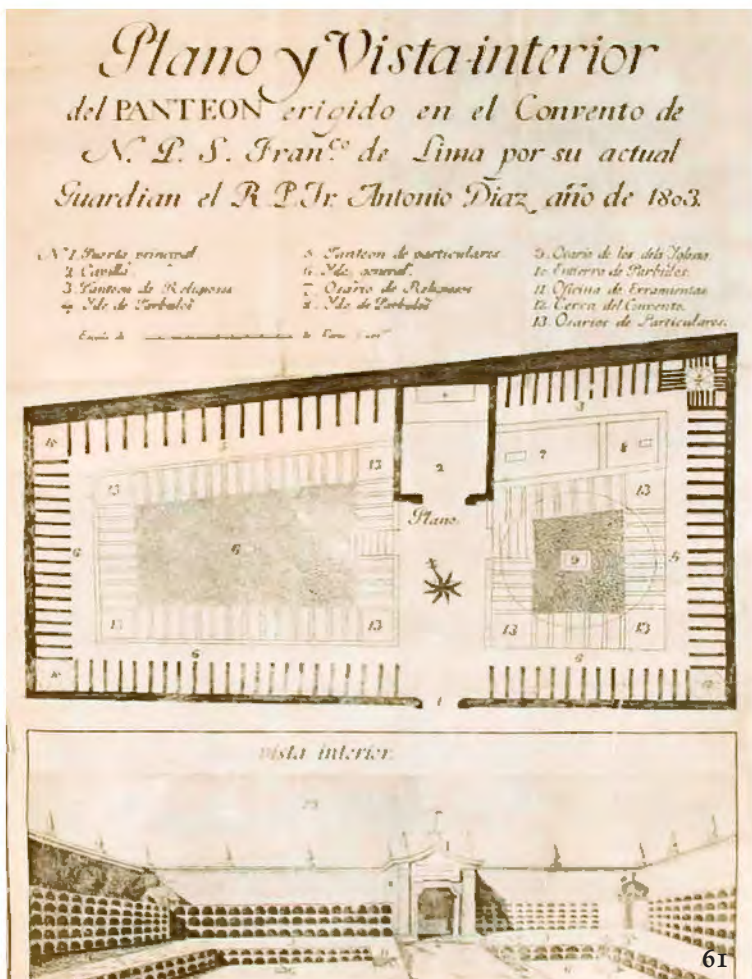 Plano y Vista interior
del PANTEON erigido en el Convento de
N. P. S. Fran.co de Lima por su actual
Guardian el R. P. Fr. Antonio Diaz año de 1803.
N.º 1 Puerta principal
2 Capilla
3 Panteon de Religiosos
4 Yde. de Parbulos
5 Panteon de particulares
6 Yde. general.
7 Osario de Religiosos
8 Yde. de Parbulos
9. Osario de los dela Yglesia
10 Entierro de Parbulos.
11 Oficina de Erramientas
12 Cerca del Convento.
13 Osarios de Particulares.
Escala de
de Varas
10
5
13
13
6
6
13
13
6
10
2
Plano.
3
7
8
13
9
5
13
13
6
1
vista interior.
61